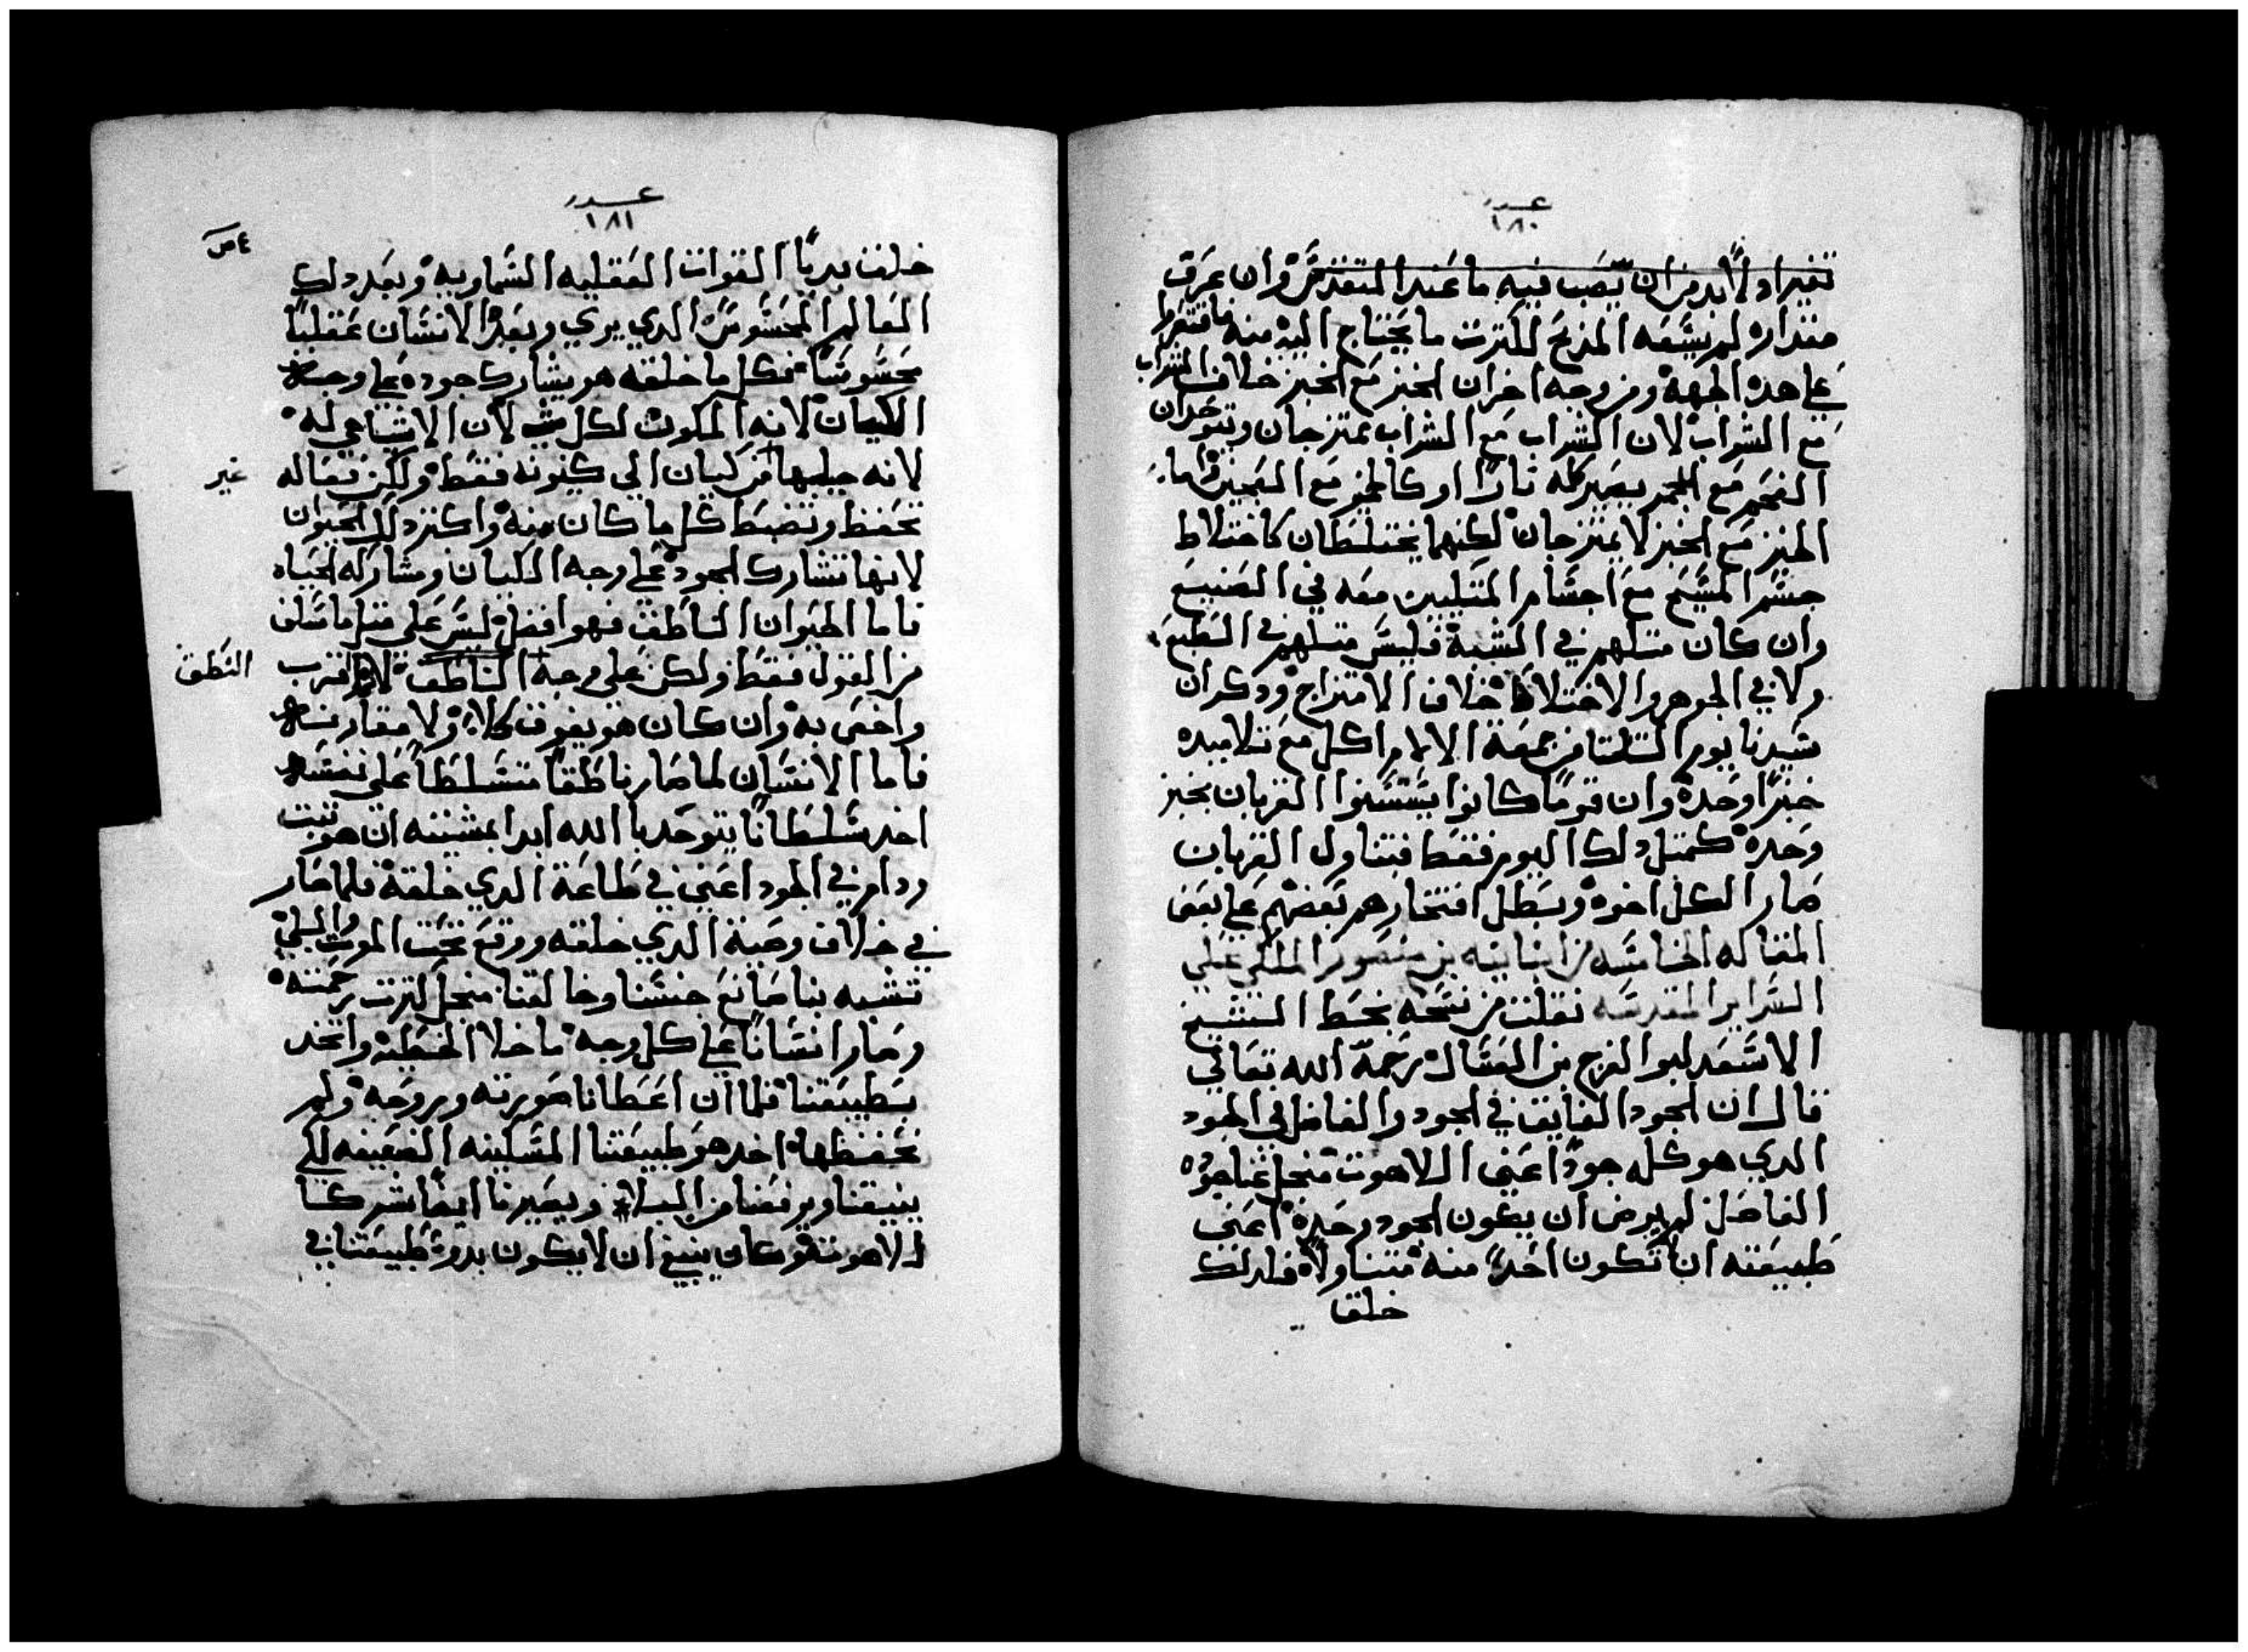 عدد
١٨٠
تغير اد لابد من ان يصب فيه ما عند المتقدمين وان عرف
مقداره لم يسعه المذبح لكثرت ما يحتاج اليه منه فاقتصر
على هذه الجهه ومن وجه اخر ان الخبز مع الخبز خلاف الشراب
مع الشراب لان الشراب مع الشراب يمتزجان ويتوحدان
الفحم مع الجمر يصير كله نارا او كالخمير مع العجين واما
الخبز مع الخبز لا يمتزجان لكنهما يختلطان كاختلاط
جسم المسيح مع اجسام المتليين معه في الصنيع
وان كان متلهم في الشبه فليس متلهم في الطبع
ولا في الجوهر والاختلاط خلاف الامتزاج ودكر ان
سيدنا يوم التلتا من جمعة الالام اكل مع تلاميده
خبزا وحده وان قوما كانوا يستسنوا القربان بخبز
وحده كمتل دلك اليوم فقط فتناول القربان
صار الكل اخوه وبطل افتخارهم بعضهم على بعض
المقاله الخامسه من ابنا بنيه بن منصور الملكي على
السراير المقدسه نقلت من نسخه بخط الشيخ
الاسعد ابو الفرج بن العسال رحمة الله تعالي
قال ان الجود الفايق في الجود والفاضل في الجود
الدي هو كله جودا اعني اللاهوت منجل غنا جوده
الفاضل لم يرض ان يكون الجود وحده اعني
طبيعته ان تكون احدا منه متناولا فلدلك
خلق
عدد
١٨١
خلق بديا القوات العقليه السماويه وبعد دلك
العالم المحسوس الدي يري وبعده الانسان عقليا
محسوسا فكل ما خلقه هو يشارك جوده على وجه
الكيان لانه المكون لكل شي لان الاشيا هي له
لانه جلبها من كيان الي كينونه فقط ولكن فعاله
غير
تحفظ وتضبط كل ما كان منه واكتر دلك الحيوان
لانها تشارك الجود على وجه الكيان ومشاركه الحياه
فاما الحيوان الناطق فهو افضل ليس على متل ما سلف
من القول فقط ولكن على وجه الناطق لانه اقرب
النطق
واخص به وان كان هو يفوق كلا ولا مقارنه
فاما الانسان لما صار ناطقا متسلطا على نفسه
اخد سلطانا يتوحد با الله ابدا بمشيته ان هو تبت
ودام في الجود اعني في طاعة الدي خلقه فلما صار
في خلاف وصية الدي خلقه ووقع تحت الموت والبلي
تشبه بنا صانع جنسنا وخالقنا منجل كترت رحمته
وصار انسانا على كل وجه ما خلا الخطيه واتخد
بطبيعتنا فلما ان اعطانا صورته وبروحه ولم
نحفظها اخد هو طبيعتنا المسكينه الضعيفه لكي
ينيقنا ويرفعنا من البلا ويصيرنا ايضا شركا
لاهوته وكان ينبغي ان لا يكون بدو طبيعتنا في